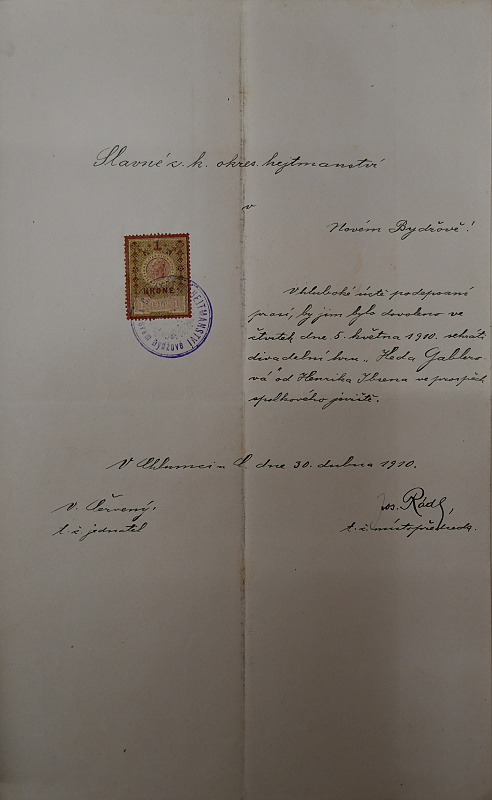 Slavné c. k. okres. hejtmanství
v
Novém Bydžově!
1
KRONE
HEJTMANSTVÍ
V hluboké úctě podepsaní
prosí, by jim bylo dovoleno ve
čtvrtek dne 5. května 1910. sehráti
divadelní hru „Heda Gablero-
vá" od Henrika Ibsena ve prospěch
spolkového jeviště.
V Chlumci n C. dne 30. dubna 1910.
V. Červený,
t. č. jednatel
Jos. Rádl,
t. č. místopředseda.